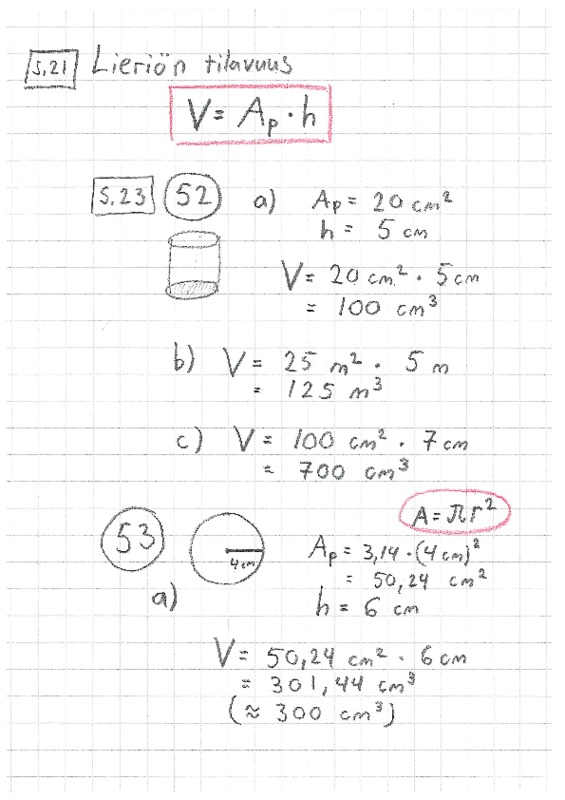 s.21 Lieriön tilavuus
V = Ap · h
s.23 52 a) Ap = 20 cm²
h = 5 cm
V = 20 cm² · 5 cm
= 100 cm³
b) V = 25 m² · 5 m
= 125 m³
c) V = 100 cm² · 7 cm
= 700 cm³
A = πr²
53 4 cm Ap = 3,14 · (4 cm)²
= 50,24 cm²
a) h = 6 cm
V = 50,24 cm² · 6 cm
= 301,44 cm³
(≈ 300 cm³)